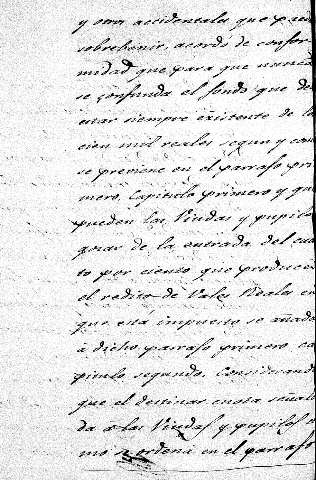 y otros accidentales que pued
sobrebenir, acordó de confor
midad que para que nunca
se confunda el fondo que de
estar siempre existente de lo
cien mil reales segun y como
se previene en el parrafo pri
mero, Capitulo primero y qu
pueden las Viudas y pupilo
gozar de la entrada del cua
to por ciento que produce
el redito de Vales Reales en
que está impuesto se añad
á dicho parrafo primero ca
pitulo segundo. Considerand
que el destinar cuota señala
da a las Viudas y pupilos
mo se ordena en el parrafo